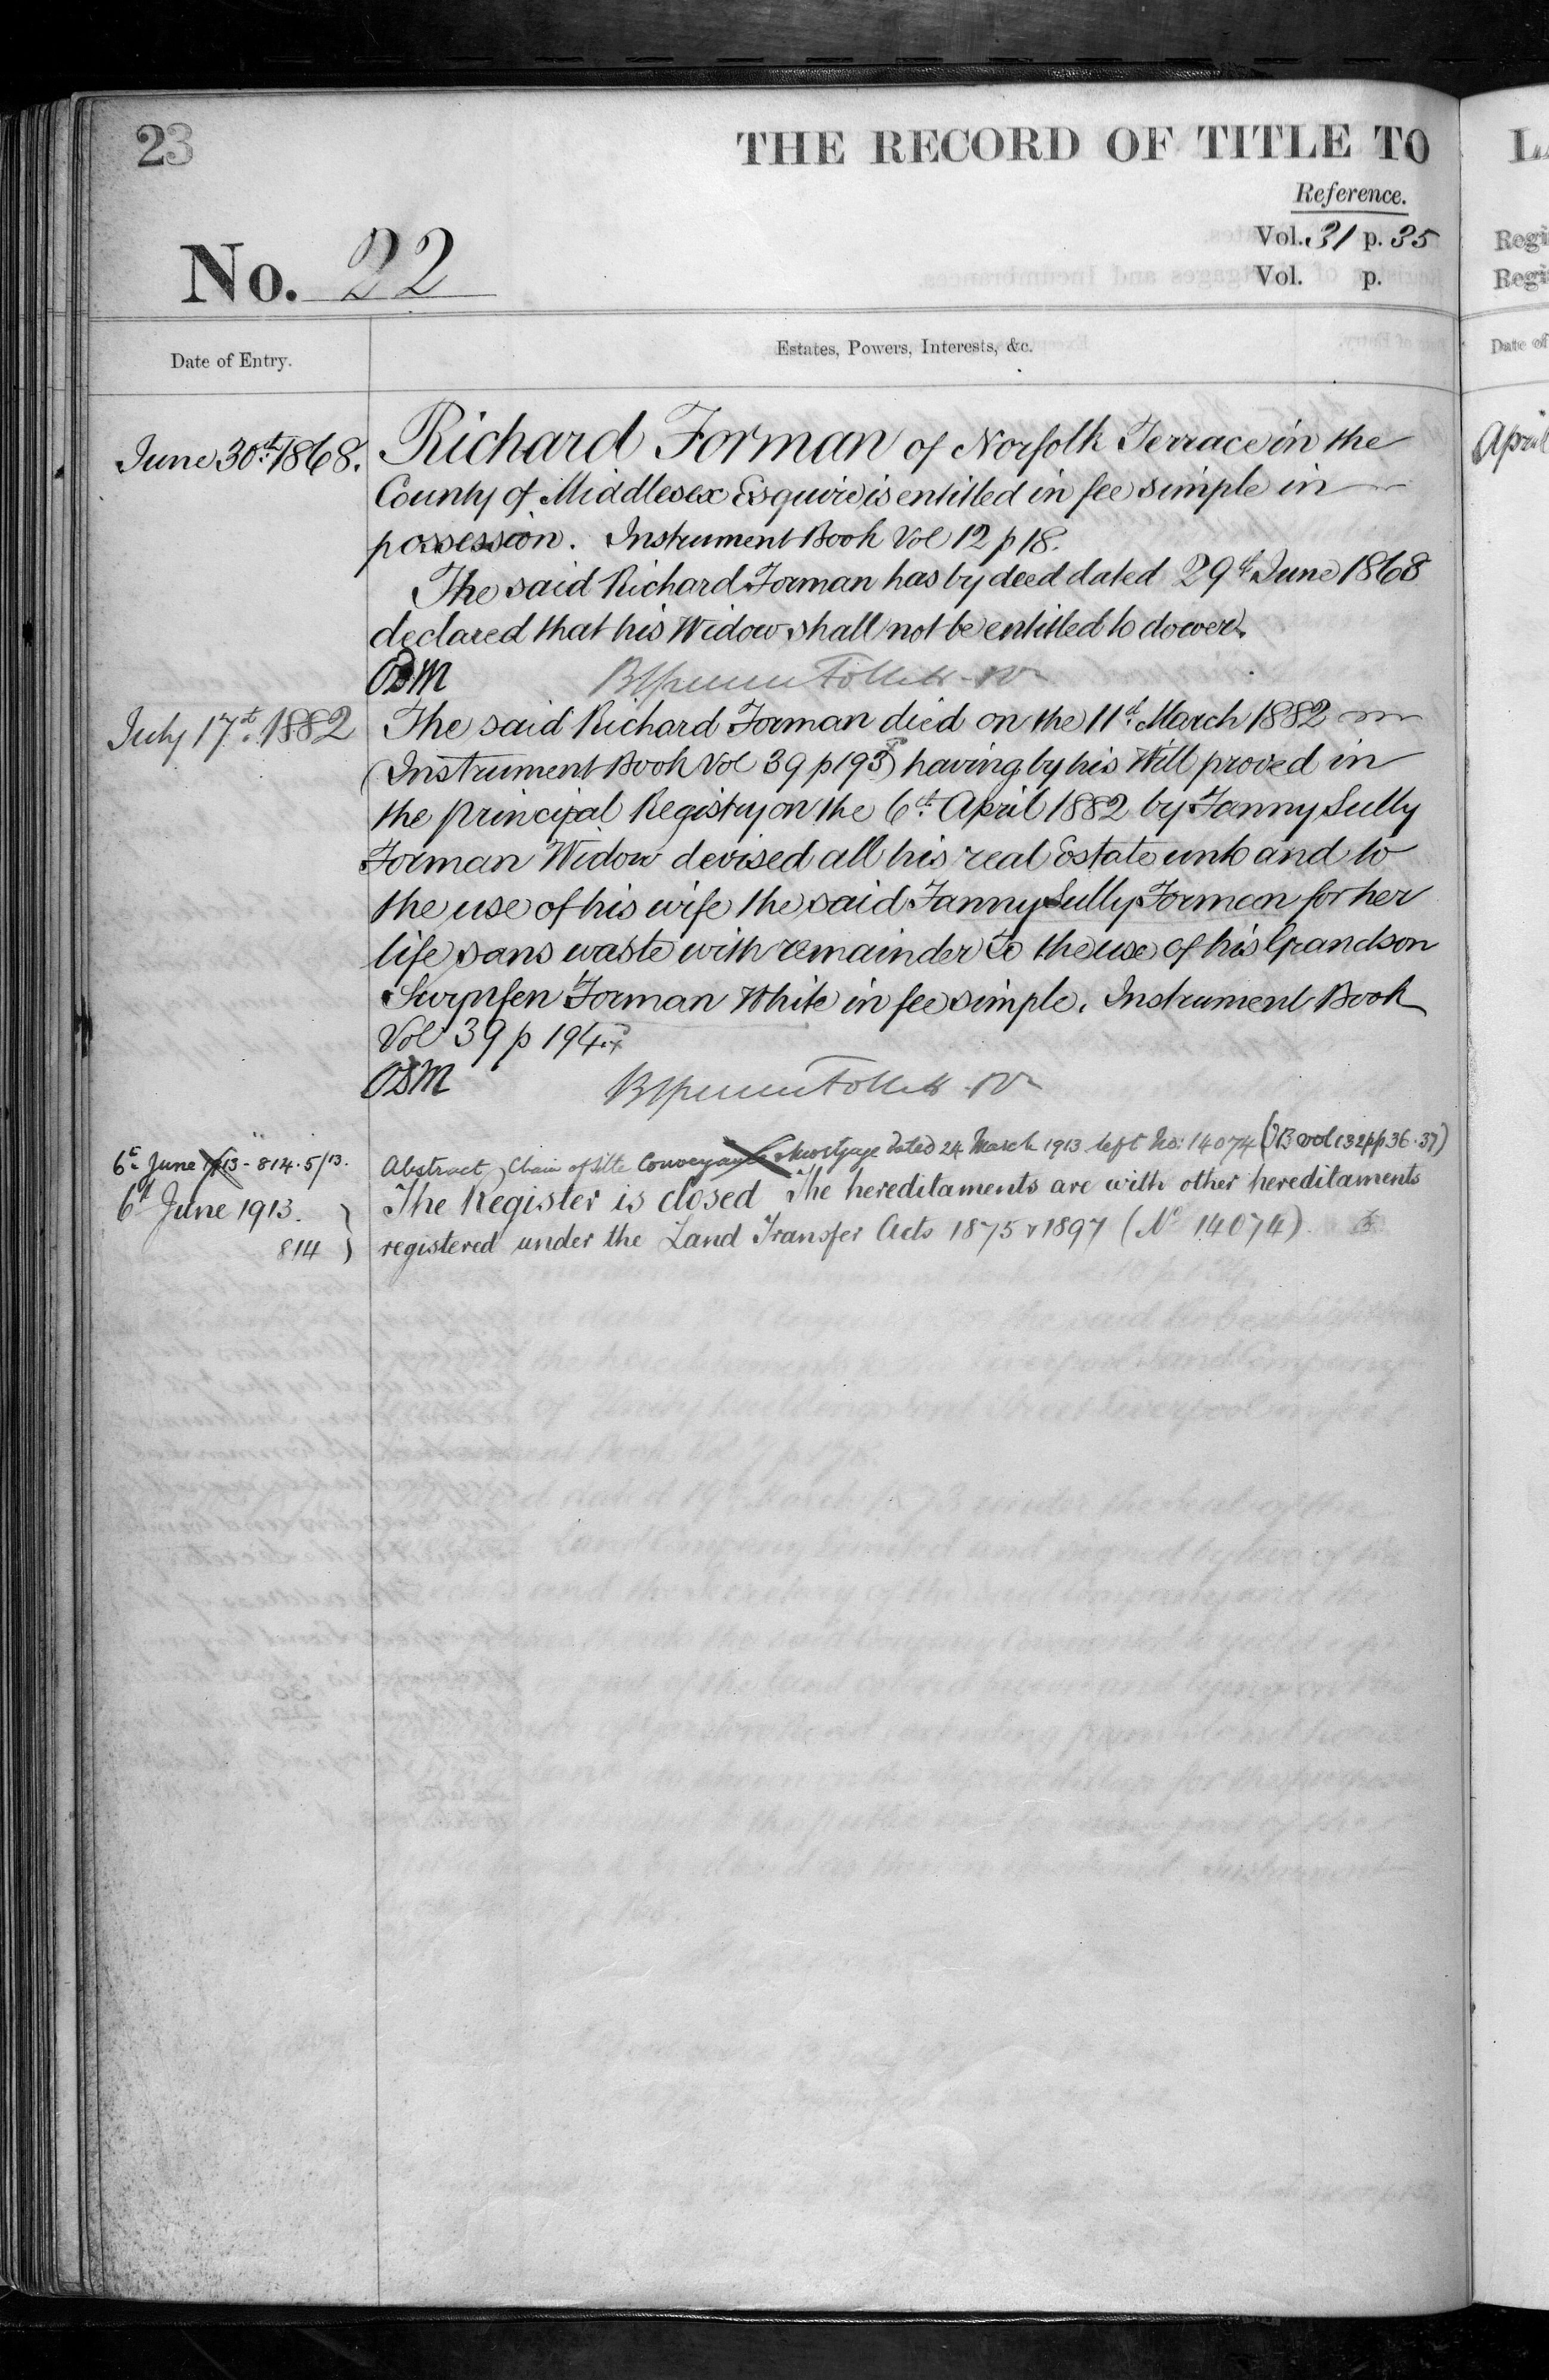 23
THE RECORD OF TITLE TO
Reference.
Vol. 31 p. 35
Vol. p.
No. 22
Date of Entry.
Estates, Powers, Interests, &c.
June 30th 1868.
Richard Forman of Norfolk Terrace in the
County of Middlesex Esquire is entitled in fee simple in
possession. Instrument Book Vol 12 p 18.
The said Richard Forman has by deed dated 29th June 1868
declared that his Widow shall not be entitled to dower.
OBM
July 17th 1882
The said Richard Forman died on the 11th March 1882
(Instrument Book Vol 39 p 193) having by his Will proved in
the principal Registry on the 6th April 1882 by Fanny Sully
Forman Widow devised all his real Estate unto and to
the use of his wife the said Fanny Sully Forman for her
life sans waste with remainder to the use of his Grandson
Swynfen Forman White in fee simple. Instrument Book
Vol 39 p 194
OBM
6th June 1913 - 814.5/13.
Abstract, Chain of title Conveyance Mortgage dated 24 March 1913 left No: 14074 (IB vol 132 pp 36.37)
6th June 1913.
814
The Register is closed The hereditaments are with other hereditaments
registered under the Land Transfer Acts 1875 & 1897 (No 14074).
L
Regi
Regi
Date of
April